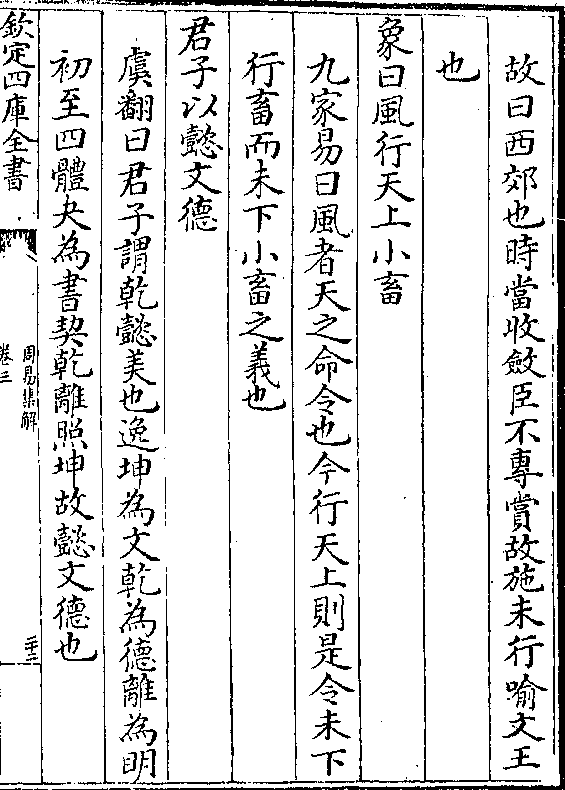 故曰西郊也時當收斂臣不專賞故施未行喻文王
也
象曰風行天上小畜
九家易曰風者天之命令也今行天上則是令未下
行畜而未下小畜之義也
君子以懿文德
虞翻曰君子謂乾懿美也逸坤為文乾為德離為明
初至四體夬為書契乾離照坤故懿文德也
欽定四庫全書
周易集解
卷三
二十二